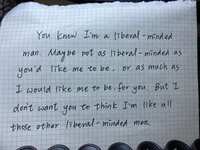 You know I'm a liberal-minded
man. Maybe not as liberal-minded as
you'd like me to be, or as much as
I would like me to be, for you. But I
don't want you to think I'm like all
those other liberal-minded men.